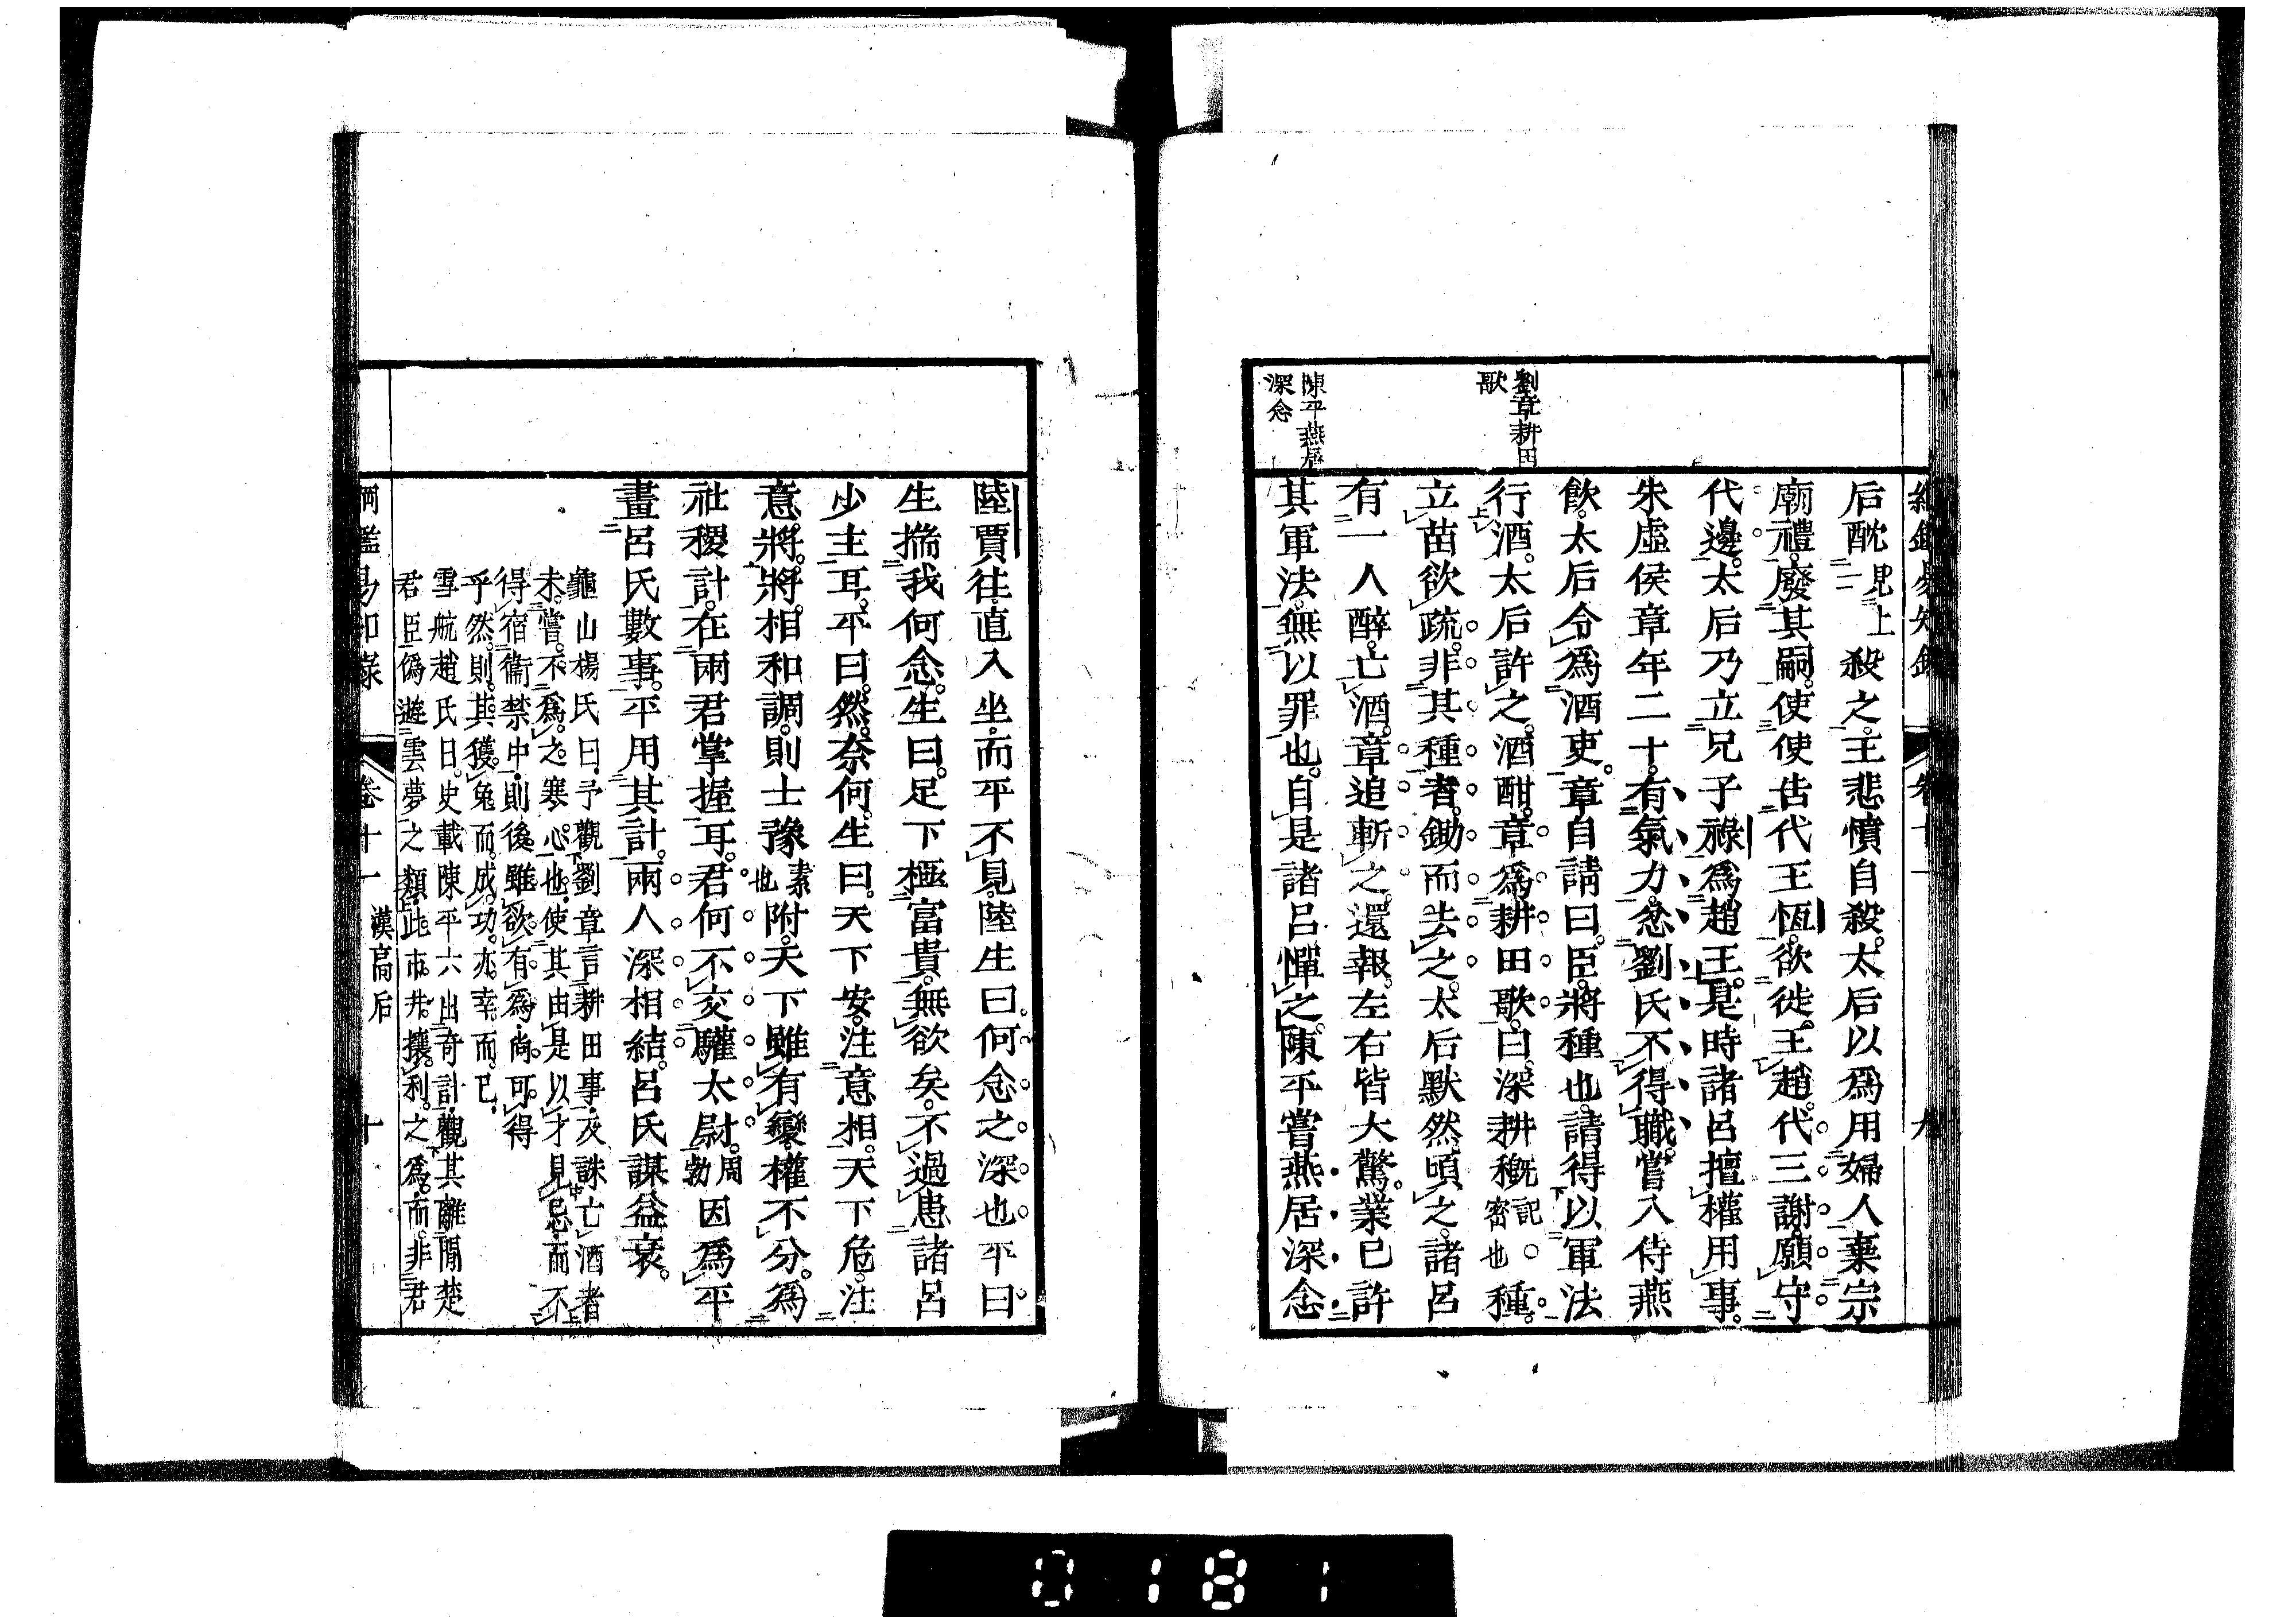 后酖二見上殺之王悲憤自殺。太后以爲用婦人棄宗
廟禮。廢其嗣。使使告代王恆。欲徙王趙。代王謝。願守
代邊。太后乃立兄子祿爲趙王。是時諸呂擅權用事。
朱虛侯章年二十。有氣力。忿劉氏不得職。嘗入侍燕
飲。太后令爲酒吏。章自請曰。臣將種也。請得以軍法
行酒。太后許之。酒酣。章爲耕田歌。曰。深耕穊記密也種。
立苗欲疏。非其種者。鋤而去之。太后默然。頃之。諸呂
有一人醉。亡酒。章追斬之。還報。左右皆大驚。業已許
其軍法。無以罪也。自是諸呂憚之。陳平嘗燕居深念
劉章耕田
歌
陳平燕居
深念
九
陸賈往。直入坐。而平不見。陸生曰。何念之深也。平曰
生揣我何念。生曰。足下極富貴。無欲矣。不過患諸呂
少主耳。平曰。然。奈何。生曰。天下安。注意相。天下危。注
意將。將相和調。則士豫素也附。天下雖有變。權不分。爲
社稷計。在兩君掌握耳。君何不交驩太尉。周勃因爲平
畫呂氏數事。平用其計。兩人深相結。呂氏謀益衰。
龜山楊氏曰。予觀劉章言耕田事。及誅亡酒者
未嘗不爲之寒心也。使其由是以才見忌。而不
得宿衞禁中。則後雖欲有爲。尚可得
乎。然則其獲免而成功。亦幸而已。
雪航趙氏曰。史載陳平六出奇計。觀其離間楚
君臣。僞遊雲夢之類。此市井攘利之爲。而非君
綱鑑易知錄 卷十一 漢高后 十
0181